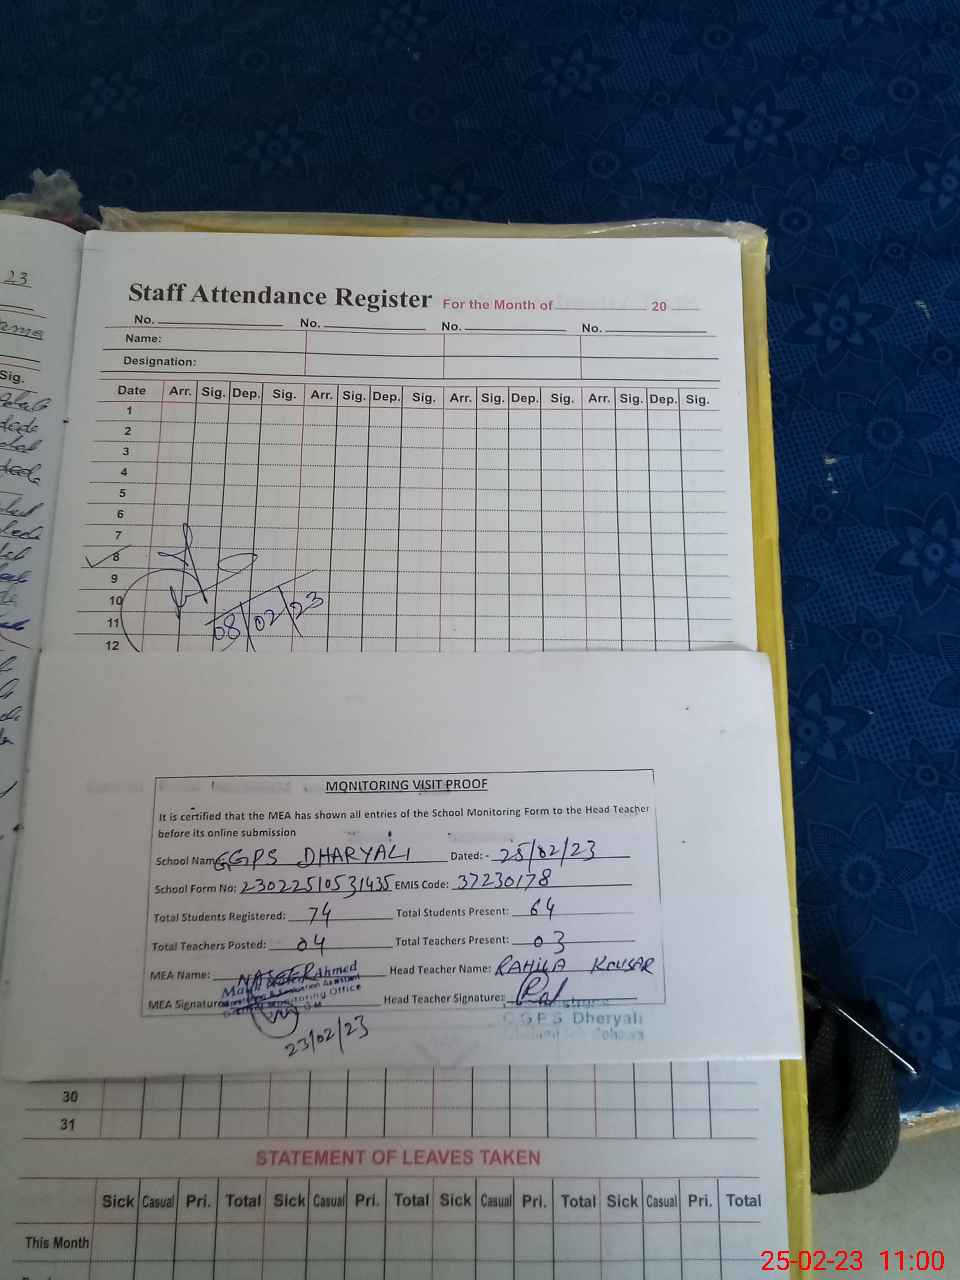 23
Sig.
Staff Attendance Register For the Month of 20
No. No. No. No.
Name:
Designation:
Date Arr. Sig. Dep. Sig. Arr. Sig. Dep. Sig. Arr. Sig. Dep. Sig. Arr. Sig. Dep. Sig.
1
2
3
4
5
6
7
8
9
10
11
12
08/02/23
MONITORING VISIT PROOF
It is certified that the MEA has shown all entries of the School Monitoring Form to the Head Teacher
before its online submission
School Name GGPS DHARYALI Dated: - 25/02/23
School Form No: 23022510531435 EMIS Code: 37230178
Total Students Registered: 74 Total Students Present: 64
Total Teachers Posted: 04 Total Teachers Present: 03
MEA Name: NASEER Ahmed Head Teacher Name: RAHILA KOUSAR
MEA Signature: Head Teacher Signature:
Monitoring Office
G G P S Dheryali
23/02/23
30
31
STATEMENT OF LEAVES TAKEN
Sick Casual Pri. Total Sick Casual Pri. Total Sick Casual Pri. Total Sick Casual Pri. Total
This Month
25-02-23 11:00